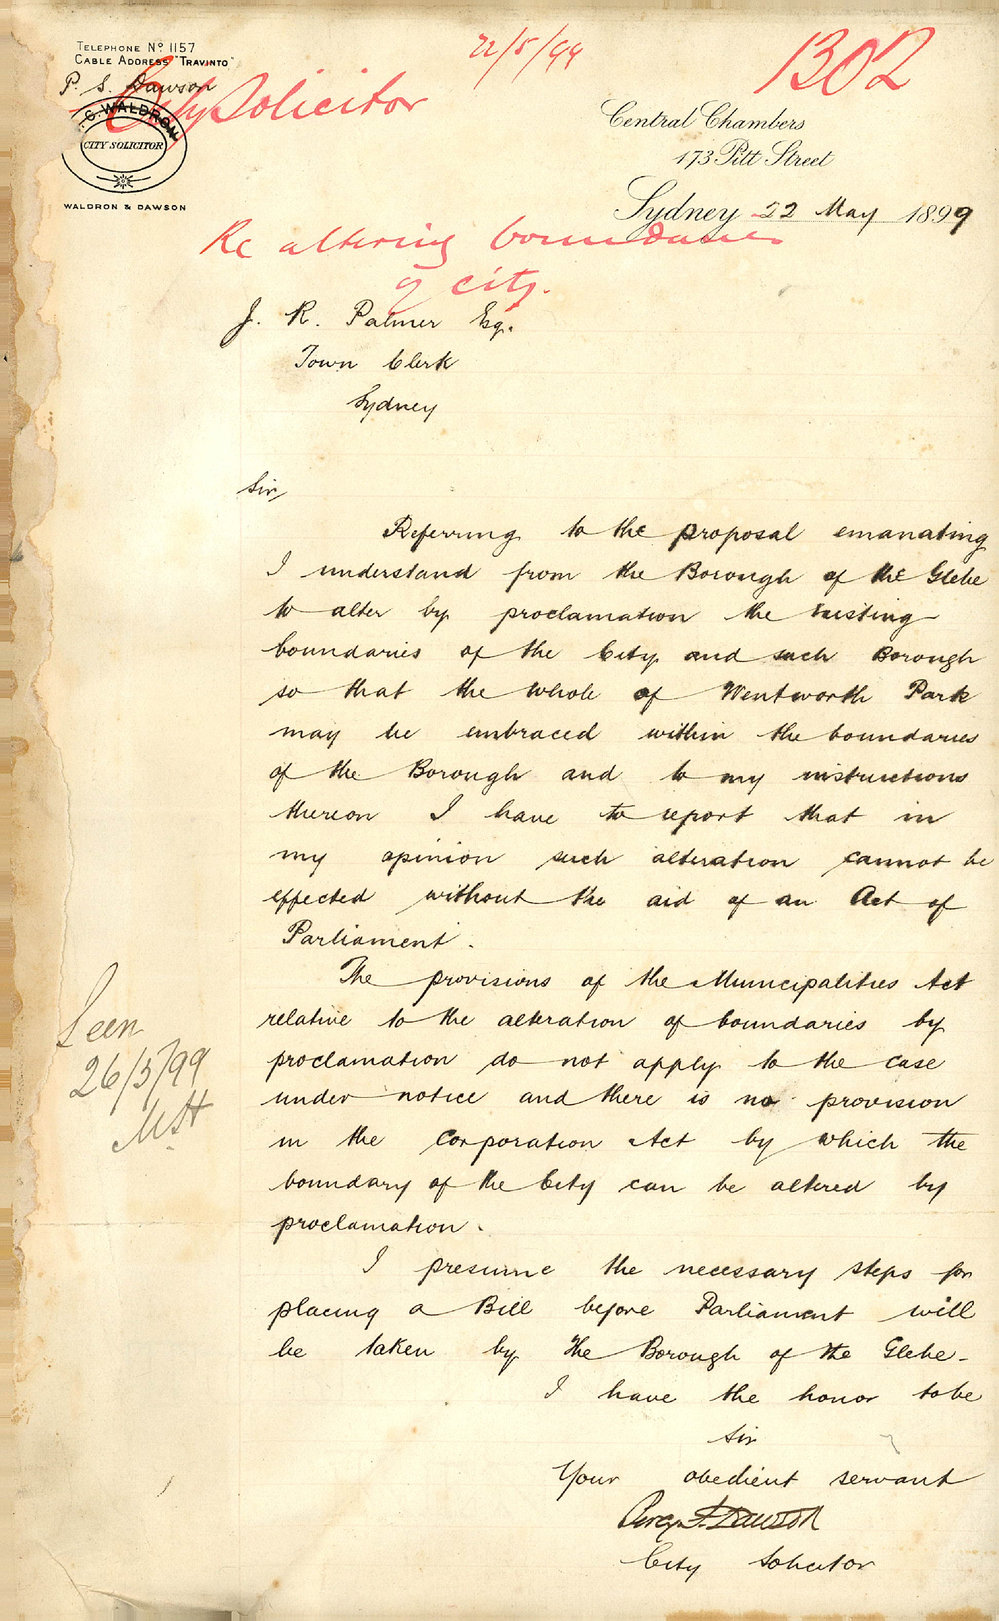 Telephone No 1157
Cable Address "Travinto"
P. S. Dawson
22/5/99
1302
City Solicitor
T.C. WALDRON
CITY SOLICITOR
WALDRON & DAWSON
Central Chambers
173 Pitt Street
Sydney 22 May 1899
Re altering boundaries
of city.
J. R. Palmer Esq.
Town Clerk
Sydney
Sir,
Referring to the proposal emanating
I understand from the Borough of the Glebe
to alter by proclamation the existing
boundaries of the City and such Borough
so that the whole of Wentworth Park
may be embraced within the boundaries
of the Borough and to my instructions
thereon I have to report that in
my opinion such alteration cannot be
effected without the aid of an Act of
Parliament.
The provisions of the Municipalities Act
relative to the alteration of boundaries by
proclamation do not apply to the case
under notice and there is no provision
in the Corporation Act by which the
boundary of the City can be altered by
proclamation.
I presume the necessary steps for
placing a Bill before Parliament will
be taken by the Borough of the Glebe-
I have the honor to be
Sir
Your obedient servant
Percy S. Dawson
City Solicitor
Seen
26/5/99